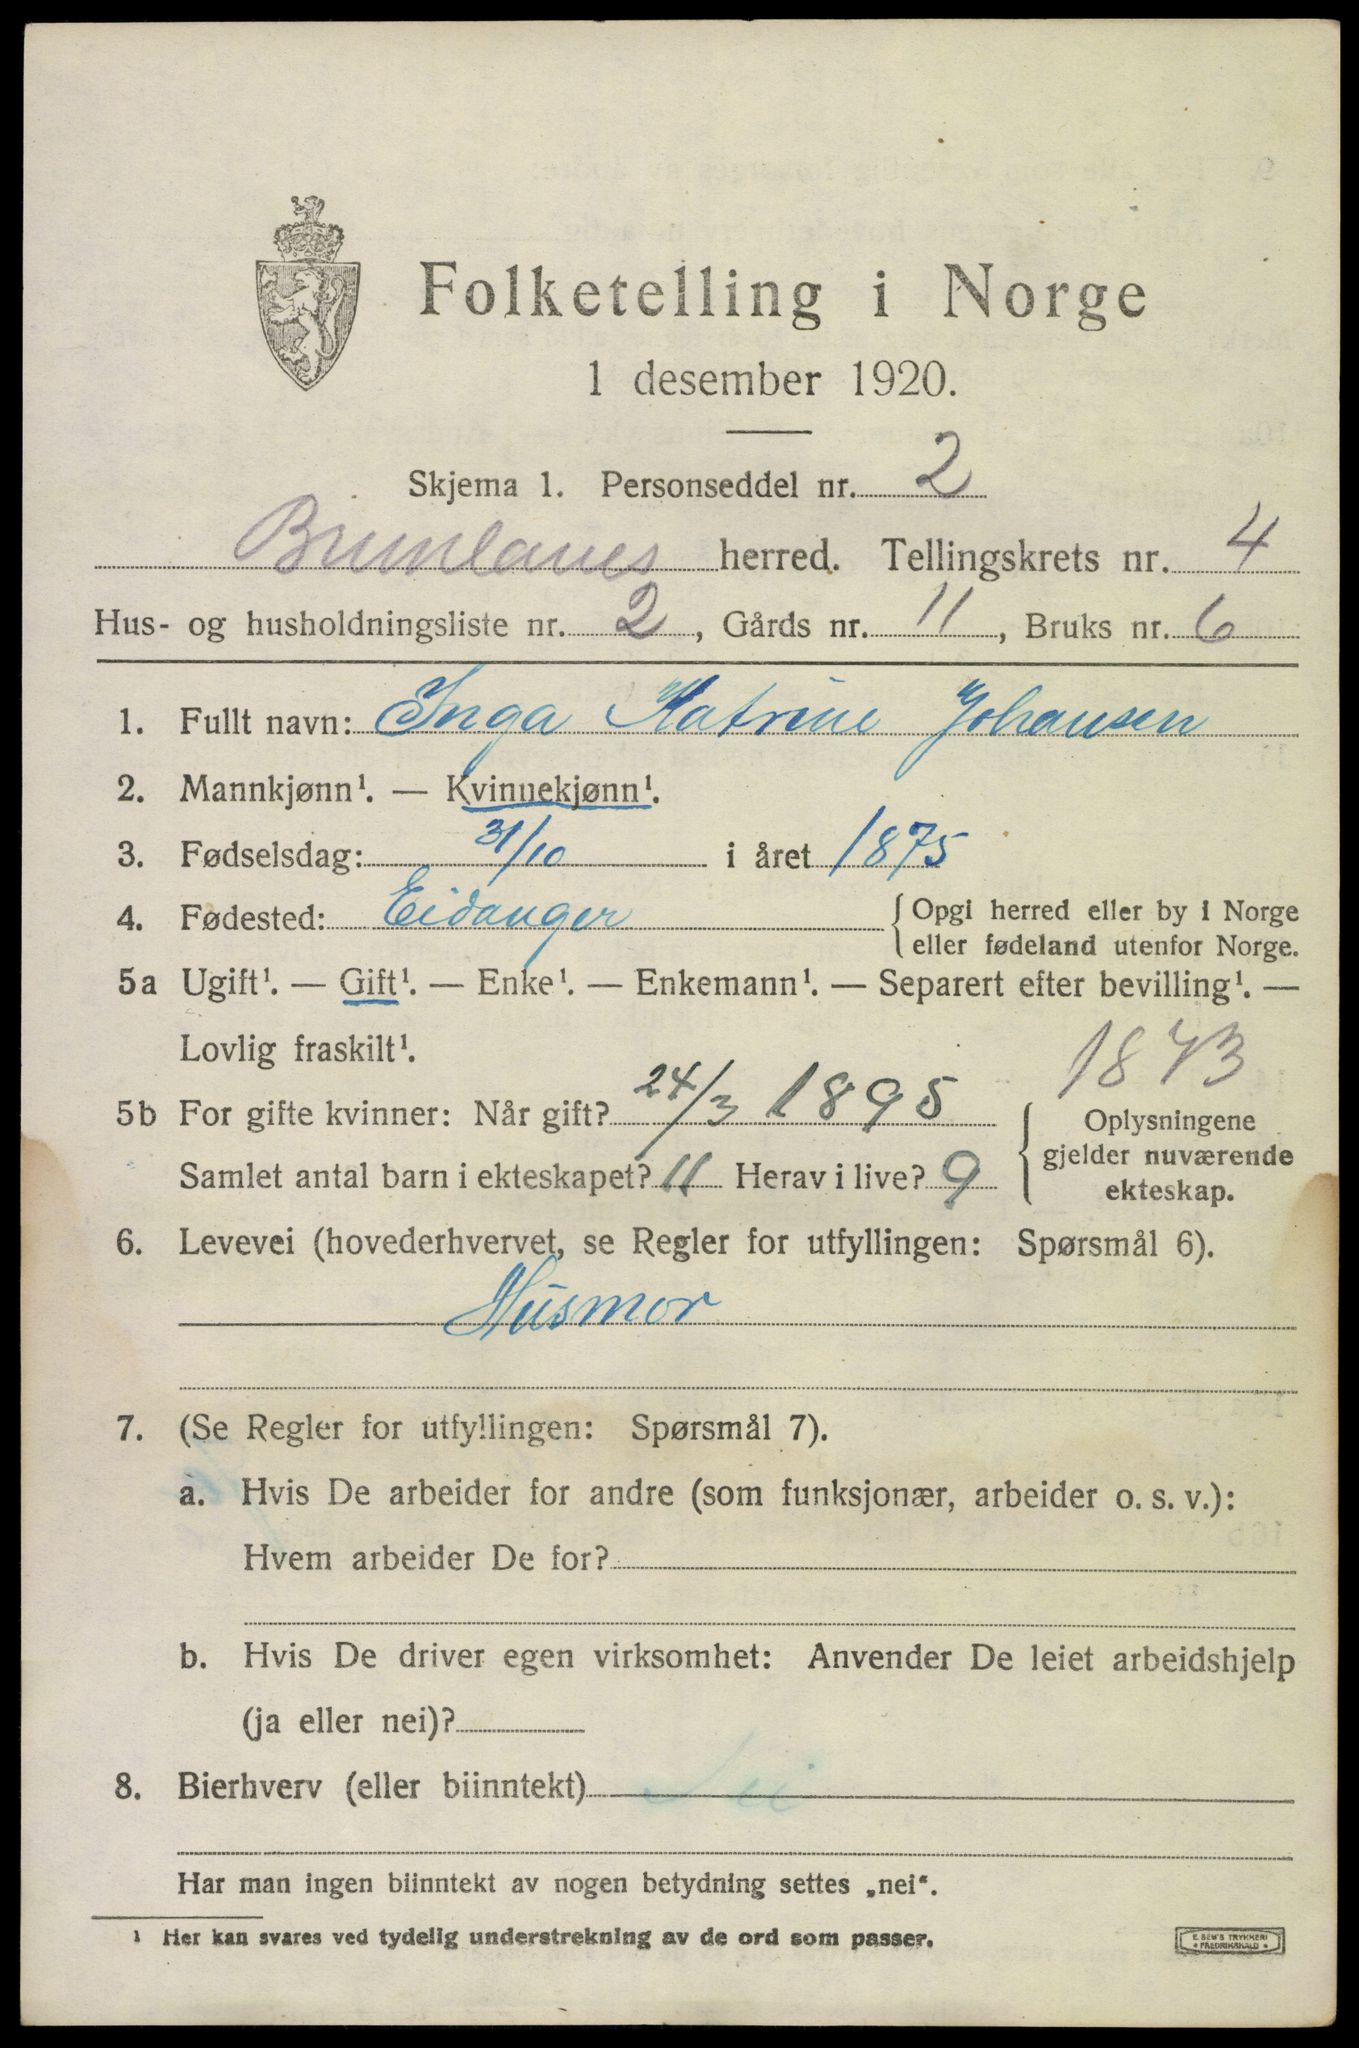 Folketelling i Norge
1 desember 1920.
Skjema 1. Personseddel nr. 2
Brunlanes herred. Tellingskrets nr. 4
Hus- og husholdningsliste nr. 2, Gårds nr. 11, Bruks nr. 6
1. Fullt navn: Inga Katrine Johansen
2. Mannkjønn¹. — Kvinnekjønn¹.
3. Fødselsdag: 31/10 i året 1875
4. Fødested: Eidanger { Opgi herred eller by i Norge
eller fødeland utenfor Norge.
5a Ugift¹. — Gift¹. — Enke¹. — Enkemann¹. — Separert efter bevilling¹. —
Lovlig fraskilt¹. 1873
5b For gifte kvinner: Når gift? 24/3 1895 { Oplysningene
gjelder nuværende
ekteskap.
Samlet antal barn i ekteskapet? 11 Herav i live? 9
6. Levevei (hovederhvervet, se Regler for utfyllingen: Spørsmål 6).
Husmor
7. (Se Regler for utfyllingen: Spørsmål 7).
a. Hvis De arbeider for andre (som funksjonær, arbeider o. s. v.):
Hvem arbeider De for?
b. Hvis De driver egen virksomhet: Anvender De leiet arbeidshjelp
(ja eller nei)?
8. Bierhverv (eller biinntekt) Nei
Har man ingen biinntekt av nogen betydning settes „nei“.
¹ Her kan svares ved tydelig understrekning av de ord som passer.
E. SEM'S TRYKKERI
FREDRIKSHALD